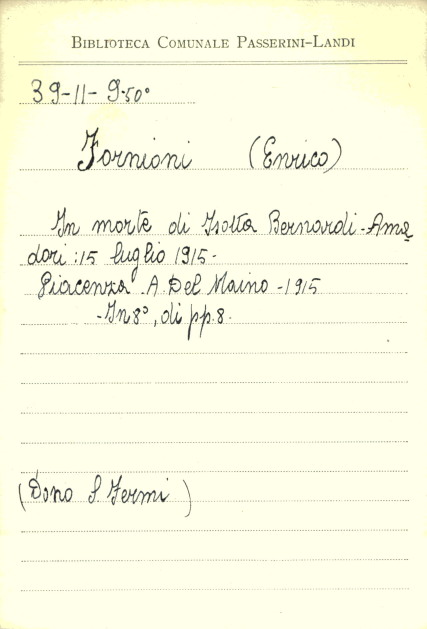 BIBLIOTECA COMUNALE PASSERINI-LANDI
39-11-9.50°
Fornioni (Enrico)
In morte di Isotta Bernardi-Ama
dori: 15 luglio 1915-
Piacenza. A. Del Maino - 1915
- In 8°, di pp. 8.
(Dono S. Fermi)